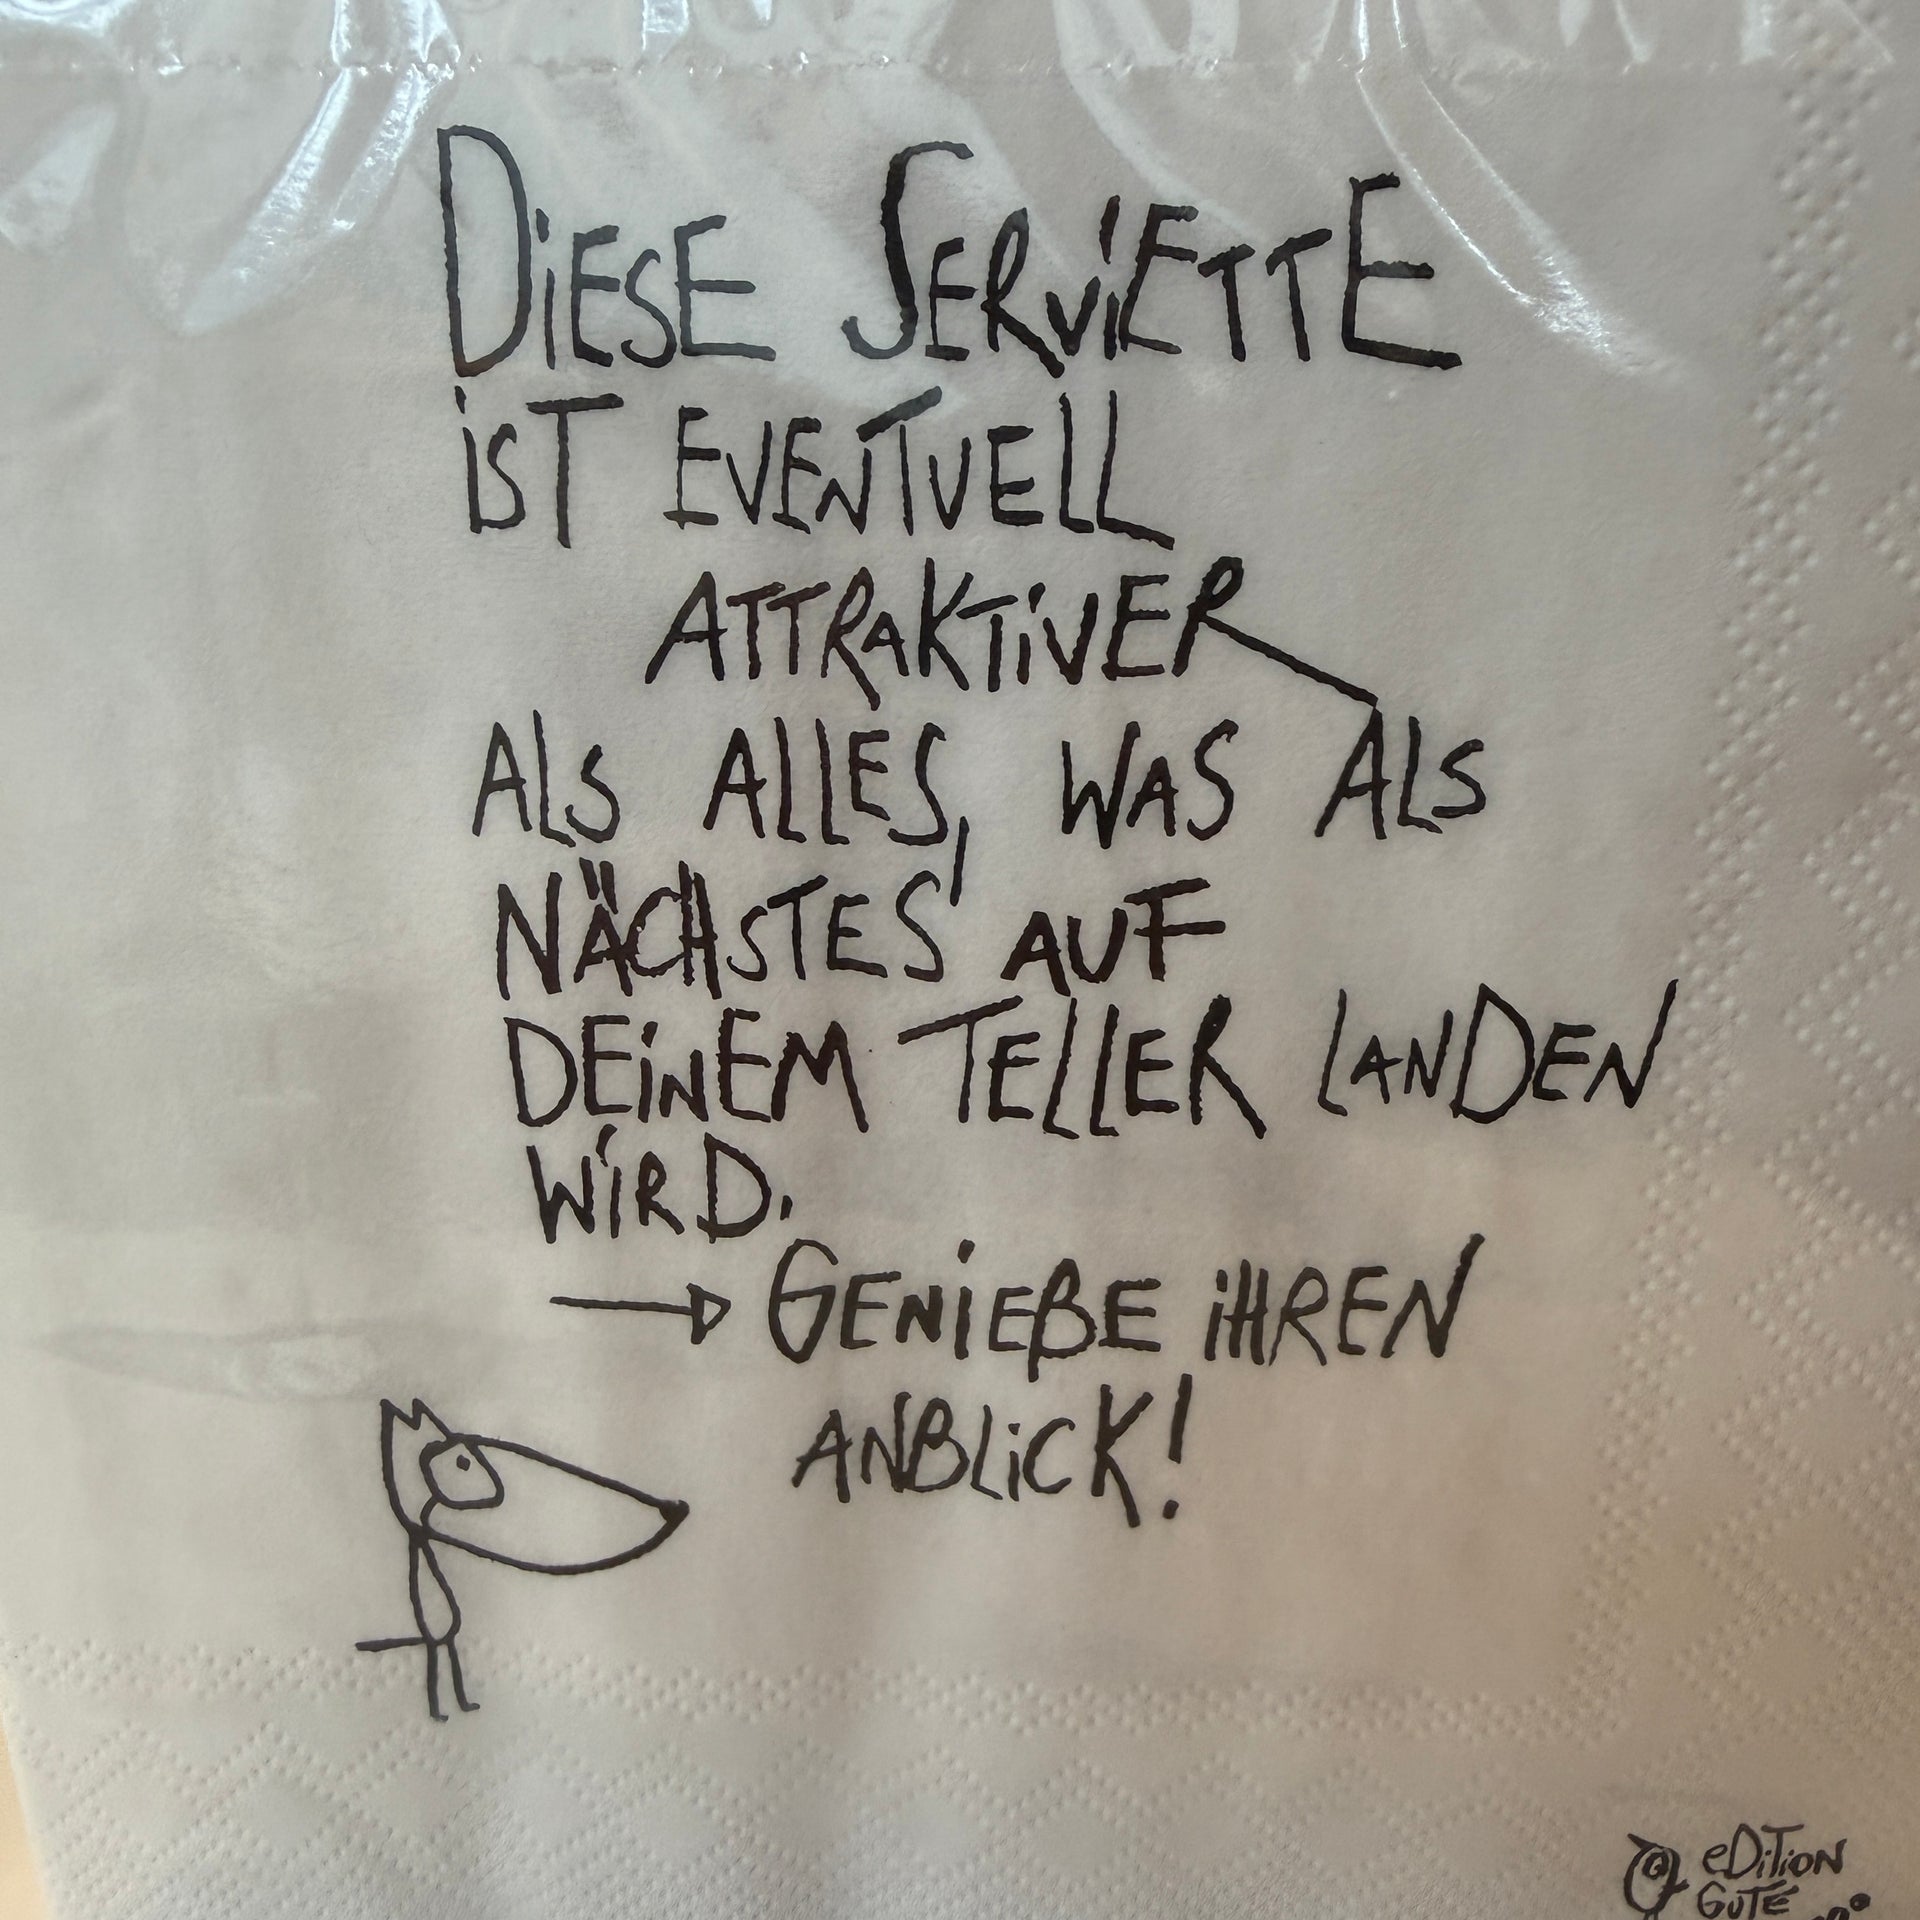 DiESE SERViETTE
iST EVENTUELL
ATTRAKTiVER
ALS ALLES, WAS ALS
NÄCHSTES AUF
DEiNEM TELLER LANDEN
WiRD.
→ GENiEßE iHREN
ANBLiCK!
eDiTiON
GUTE